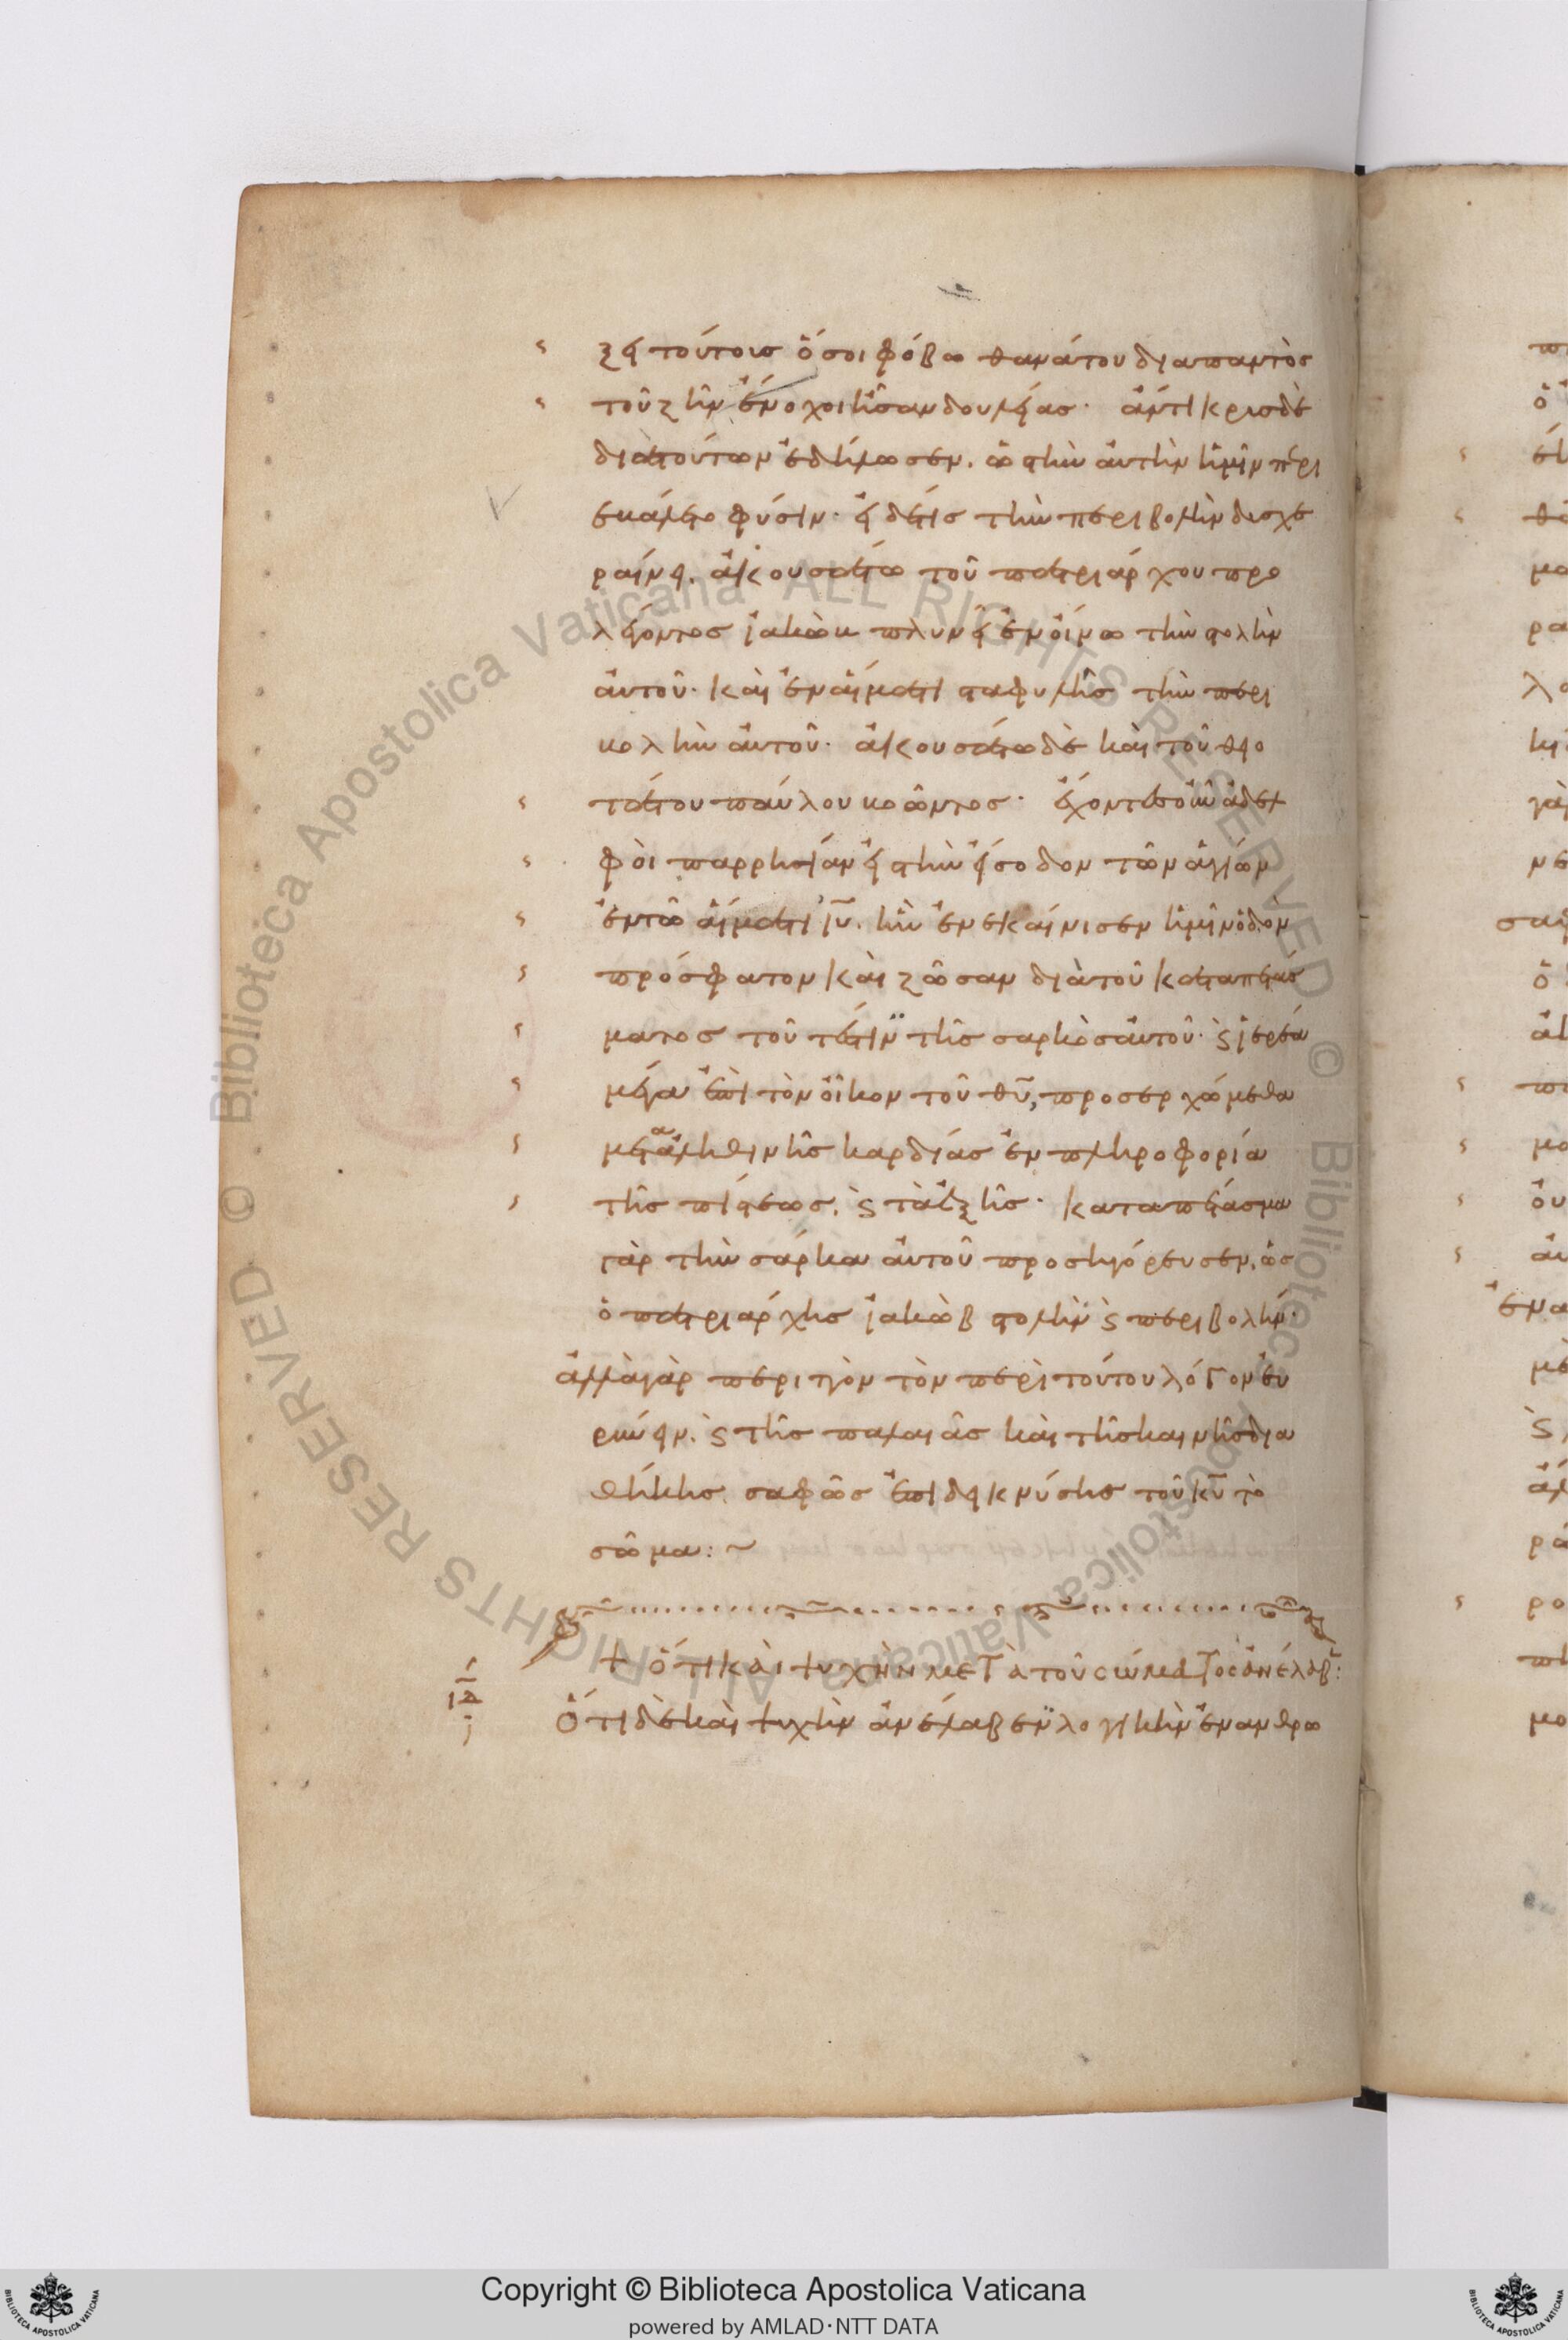 ξει τούτους ὅσοι φόβω θανάτου διαπαντὸς
τοῦ ζῆν ἔνοχοι ἦσαν δουλείας· ἄντικρυς δὲ
διατούτων ἐδήλωσεν, ὡς τὴν αὐτὴν ἡμῖν περι
εκαλεῖτο φύσιν· εἰ δέ τις τὴν περιβολὴν δυσχε
ραίνει, ἀκουσάτω τοῦ πατριάρχου προ
λέγοντος ἰακὼβ πλυνεῖ ἐν οἴνω τὴν στολὴν
αὐτοῦ· καὶ ἐν αἵματι σταφυλῆς τὴν περι
βολὴν αὐτοῦ· ἀκουσάτω δὲ καὶ τοῦ θειο
τάτου παύλου βοῶντος· ἔχοντες οὖν ἀδελ
φοὶ παρρησίαν εἰς τὴν εἴσοδον τῶν ἁγίων
ἐν τῶ αἵματι ιυ, ἣν ἐνεκαίνισεν ἡμῖν ὁδὸν
πρόσφατον καὶ ζῶσαν διὰ τοῦ καταπετάσ
ματος τοῦτέστιν τῆς σαρκὸς αὐτοῦ· ϛ ἱερέα
μέγαν ἐπὶ τὸν οἶκον τοῦ θυ, προσερχώμεθα
μετα ἀληθινῆς καρδίας ἐν πληροφορία
τῆς πίστεως, ϛ τὰ ἑξῆς· καταπέτασμα
γὰρ τὴν σάρκα αὐτοῦ προσηγόρευσεν, ὡς
ὁ πατριάρχης ἰακὼβ στολὴν ϛ περιβολήν·
ἀλλὰ γὰρ περιττὸν τὸν περὶ τούτου λόγον ἐυ
ρύνειν, ϛ τῆς παλαιᾶς καὶ τῆς καινῆς δια
θήκης, σαφῶς ἐπιδεικνύσης τοῦ κυ τὸ
σῶμα: ~
ὅτι καὶ ψυχὴν μετὰ τοῦ σώματος ἀνέλαβ:
ιδ ὅτι δὲ καὶ ψυχὴν ἀνέλαβεν λογικὴν ἐνανθρω
Copyright © Biblioteca Apostolica Vaticana
powered by AMLAD·NTT DATA